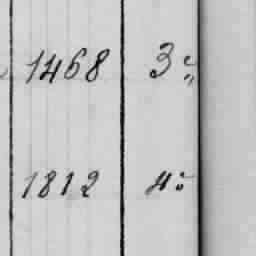 1468 3:
1812 4: